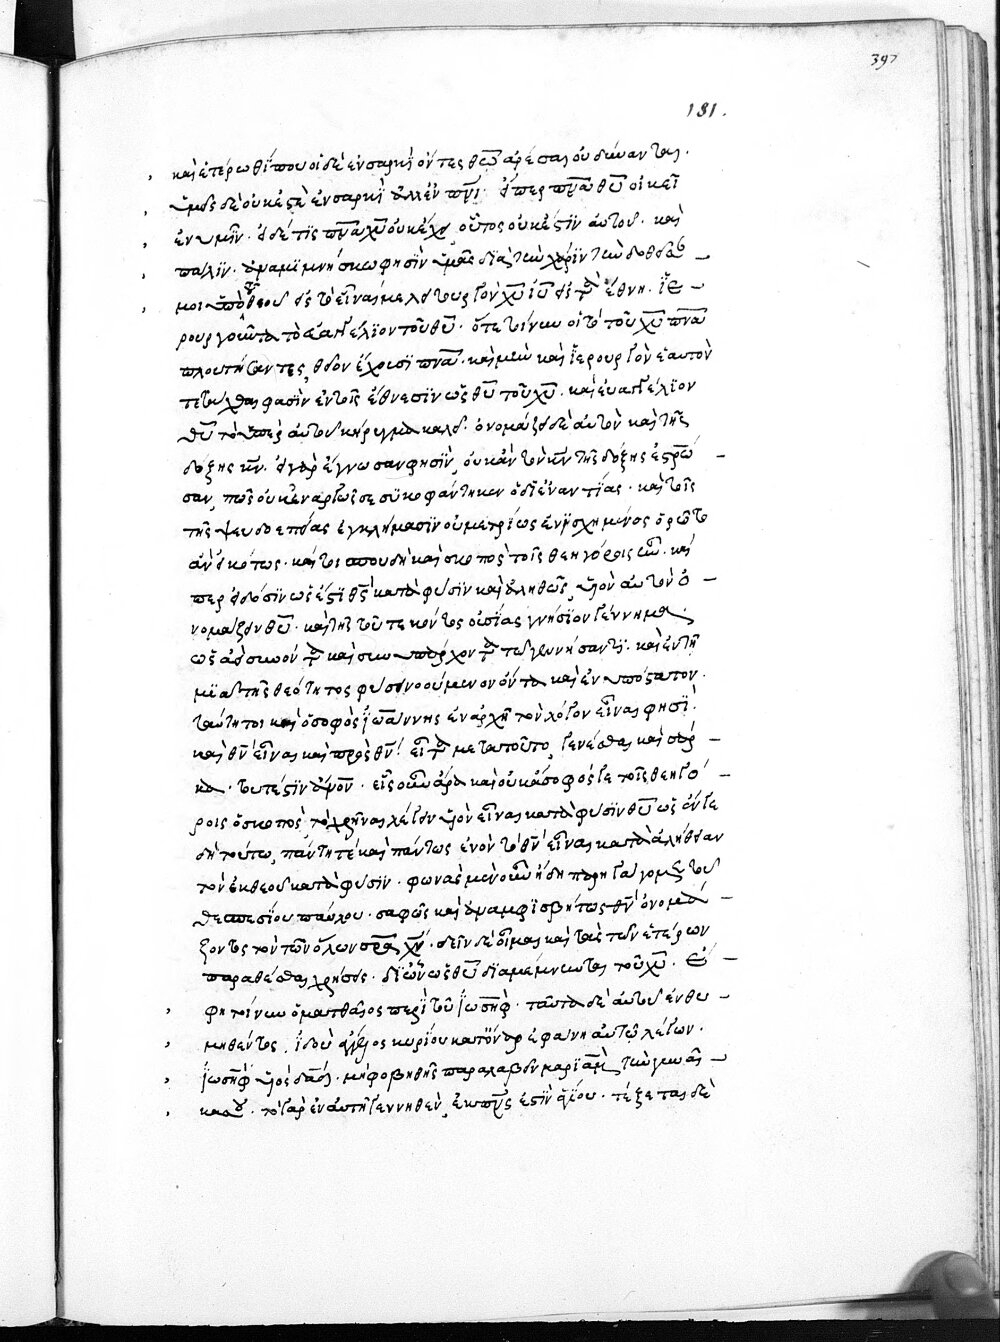 397
181.
καὶ ἑτέρωθί που οἱ δὲ ἐν σαρκὶ ὄντες θω ἀρέσαι οὐ δύνανται.
ὑμεῖς δὲ οὐκ ἐστὲ ἐν σαρκὶ ἀλλ' ἐν πνι. εἴπερ πνα θυ οἰκεῖ
ἐν ὑμῖν. εἰ δέ τις πνα χυ οὐκ ἔχει, οὗτος οὐκ ἔστιν αὐτοῦ. καὶ
πάλιν. ἀναμιμνήσκω φησὶν ὑμᾶς διὰ τὴν χάριν τὴν δοθεῖσαν
μοι ὑπὸ τοῦ θεοῦ εἰς τὸ εἶναί με λειτουργὸν χυ ιυ εἰς τὰ ἔθνη. ἱε
ρουργοῦντα τὸ εὐαγγέλιον τοῦ θυ. ὅτε τοίνυν οἱ τὸ τοῦ χυ πνα
πλουτήσαντες, θεῖον ἔχουσι πνα. καὶ μὴν καὶ ἱερουργὸν ἑαυτὸν
τετάχθαι φασὶν ἐν τοῖς ἔθνεσιν ὡς θυ τοῦ χυ. καὶ εὐαγγέλιον
θυ τὸ ὑπὲρ αὐτοῦ κήρυγμα καλεῖ. ὀνομάζει δὲ αὐτὸν καὶ τῆς
δόξης κν. εἰ γὰρ ἔγνωσαν φησὶν, οὐκ ἂν τὸν κν τῆς δόξης ἐσταύρω
σαν, πῶς οὐκ ἐναργῶς σεσυκοφάντηκεν ὁ δι' ἐναντίας. καὶ τοῖς
τῆς ψευδοεπείας ἐγκλήμασιν οὐ μετρίως ἐνισχημένος ὁρῶτο
ἂν εἰκότως. καίτοι σπουδὴ καὶ σκοπὸς τοῖς θεηγόροις ἦν. καὶ
περ εἰδόσιν ὡς ἔστι θς κατὰ φύσιν καὶ ἀληθῶς, υἱὸν αὐτὸν ὀ
νομάζειν θυ. καὶ τῆς τοῦ τεκόντος οὐσίας γνήσιον γέννημα.
ὡς ἀεὶ συνὸν τε καὶ συνυπάρχον τε τῷ γεννήσαντι. καὶ ἐν τῇ
μιᾷ τῆς θεότητος φύσει νοούμενον ὄντα καὶ ἐνυπόστατον.
ταύτῃ τοι καὶ ὁ σοφὸς ἰωάννης ἐν ἀρχῇ τὸν λόγον εἶναι φησί.
καὶ θν εἶναι καὶ πρὸς θν! εἶτα μετὰ τοῦτο, γενέσθαι καὶ σάρ
κα. τουτέστιν ἄνον. εἷς οὖν ἄρα καὶ οὐκ ἄσοφός γε τοῖς θεηγό
ροις ὁ σκοπὸς, τὸ χρῆναι λέγειν υἱὸν εἶναι κατὰ φύσιν θυ ὡς ὄντε
δὴ τούτω, πάντη τε καὶ πάντως ἐνὸν τὸ θν εἶναι κατὰ ἀλήθειαν
τὸν ἐκ θεοῦ κατὰ φύσιν. φωναὶ μὲν οὖν ἤδη παρηγάγομεν τοῦ
θεσπεσίου παύλου. σαφῶς καὶ ἀναμφισβήτως θν ὀνομά
ζοντος τὸν τῶν ὅλων σρα χν. δεῖν δὲ οἶμαι καὶ τὰς τῶν ἑτέρων
παραθέσθαι χρήσεις. δι' ὧν ὡς θυ διαμέμνηνται τοῦ χυ. ἔ
φη τοίνυν ὁ ματθαῖος περὶ τοῦ ἰωσὴφ. ταῦτα δὲ αὐτοῦ ἐνθυ
μηθέντος, ἰδοὺ ἄγγελος κυρίου κατ' ὄναρ ἐφάνη αὐτῷ λέγων.
ἰωσὴφ υἱὸς δαδ. μὴ φοβηθῇς παραλαβεῖν μαριὰμ τὴν γυναῖ
κα σου. τὸ γὰρ ἐν αὐτῇ γεννηθὲν, ἐκ πνς ἐστὶν ἁγίου. τέξεται δὲ